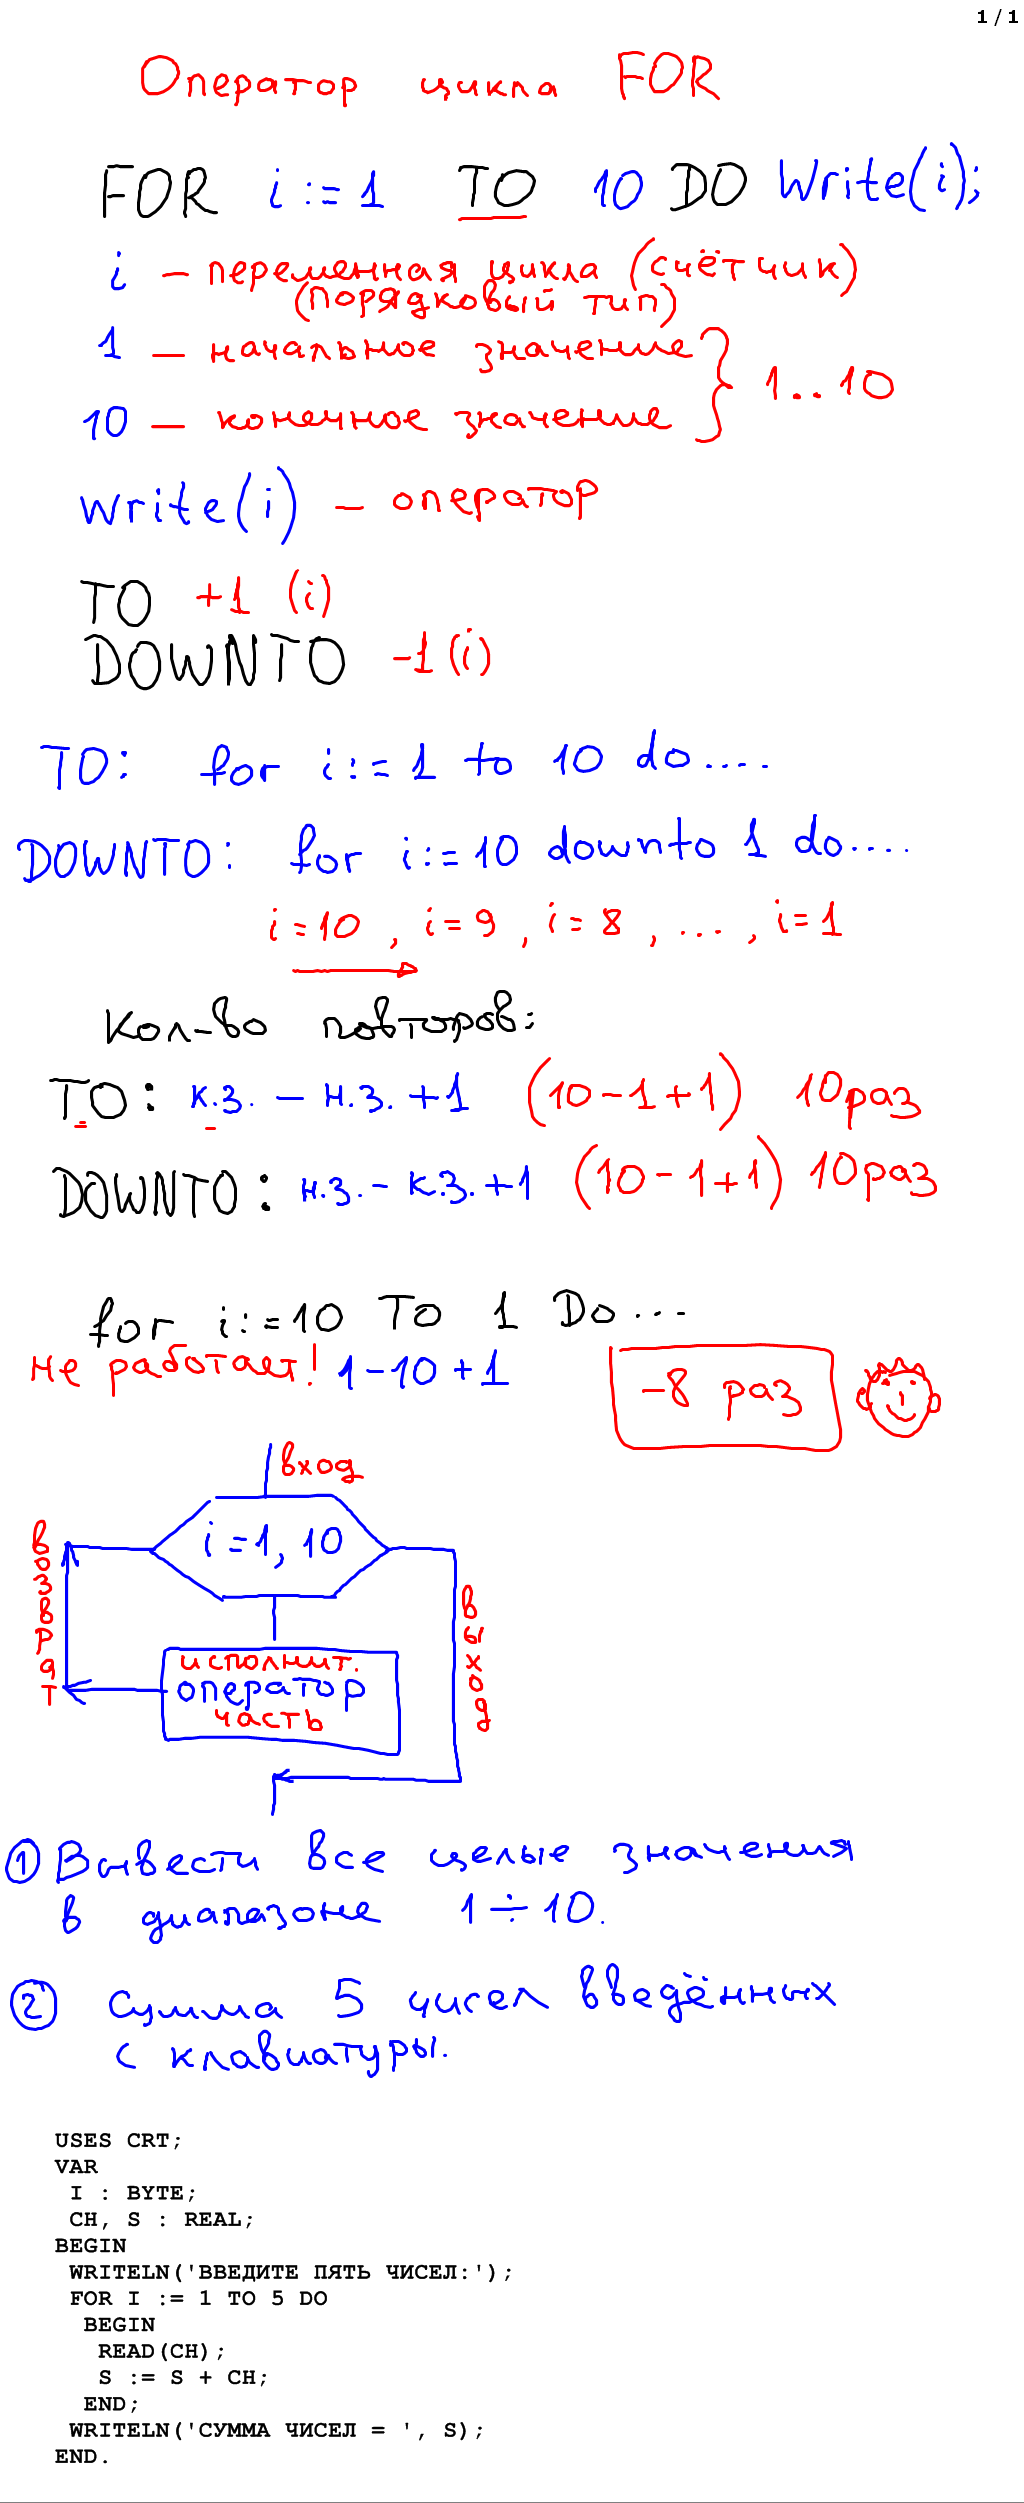 1 / 1
Оператор цикла FOR
FOR i := 1 TO 10 DO Write(i);
i – переменная цикла (счётчик)
(порядковый тип)
1 – начальное значение
1..10
10 – конечное значение
write(i) – оператор
TO +1 (i)
DOWNTO -1 (i)
TO: for i:=1 to 10 do....
DOWNTO: for i:=10 downto 1 do....
i=10, i=9, i=8, ..., i=1
Кол-во повторов:
TO: к.з. – н.з. +1 (10-1+1) 10 раз
DOWNTO: н.з. - к.з. +1 (10-1+1) 10 раз
for i:=10 TO 1 DO...
не работает! 1-10+1
-8 раз
вход
i=1, 10
возврат
выход
исполнит.
оператор
часть
① Вывести все целые значения
в диапазоне 1÷10.
② Сумма 5 чисел введённых
с клавиатуры.
USES CRT;
VAR
I : BYTE;
CH, S : REAL;
BEGIN
WRITELN('ВВЕДИТЕ ПЯТЬ ЧИСЕЛ:');
FOR I := 1 TO 5 DO
BEGIN
READ(CH);
S := S + CH;
END;
WRITELN('СУММА ЧИСЕЛ = ', S);
END.